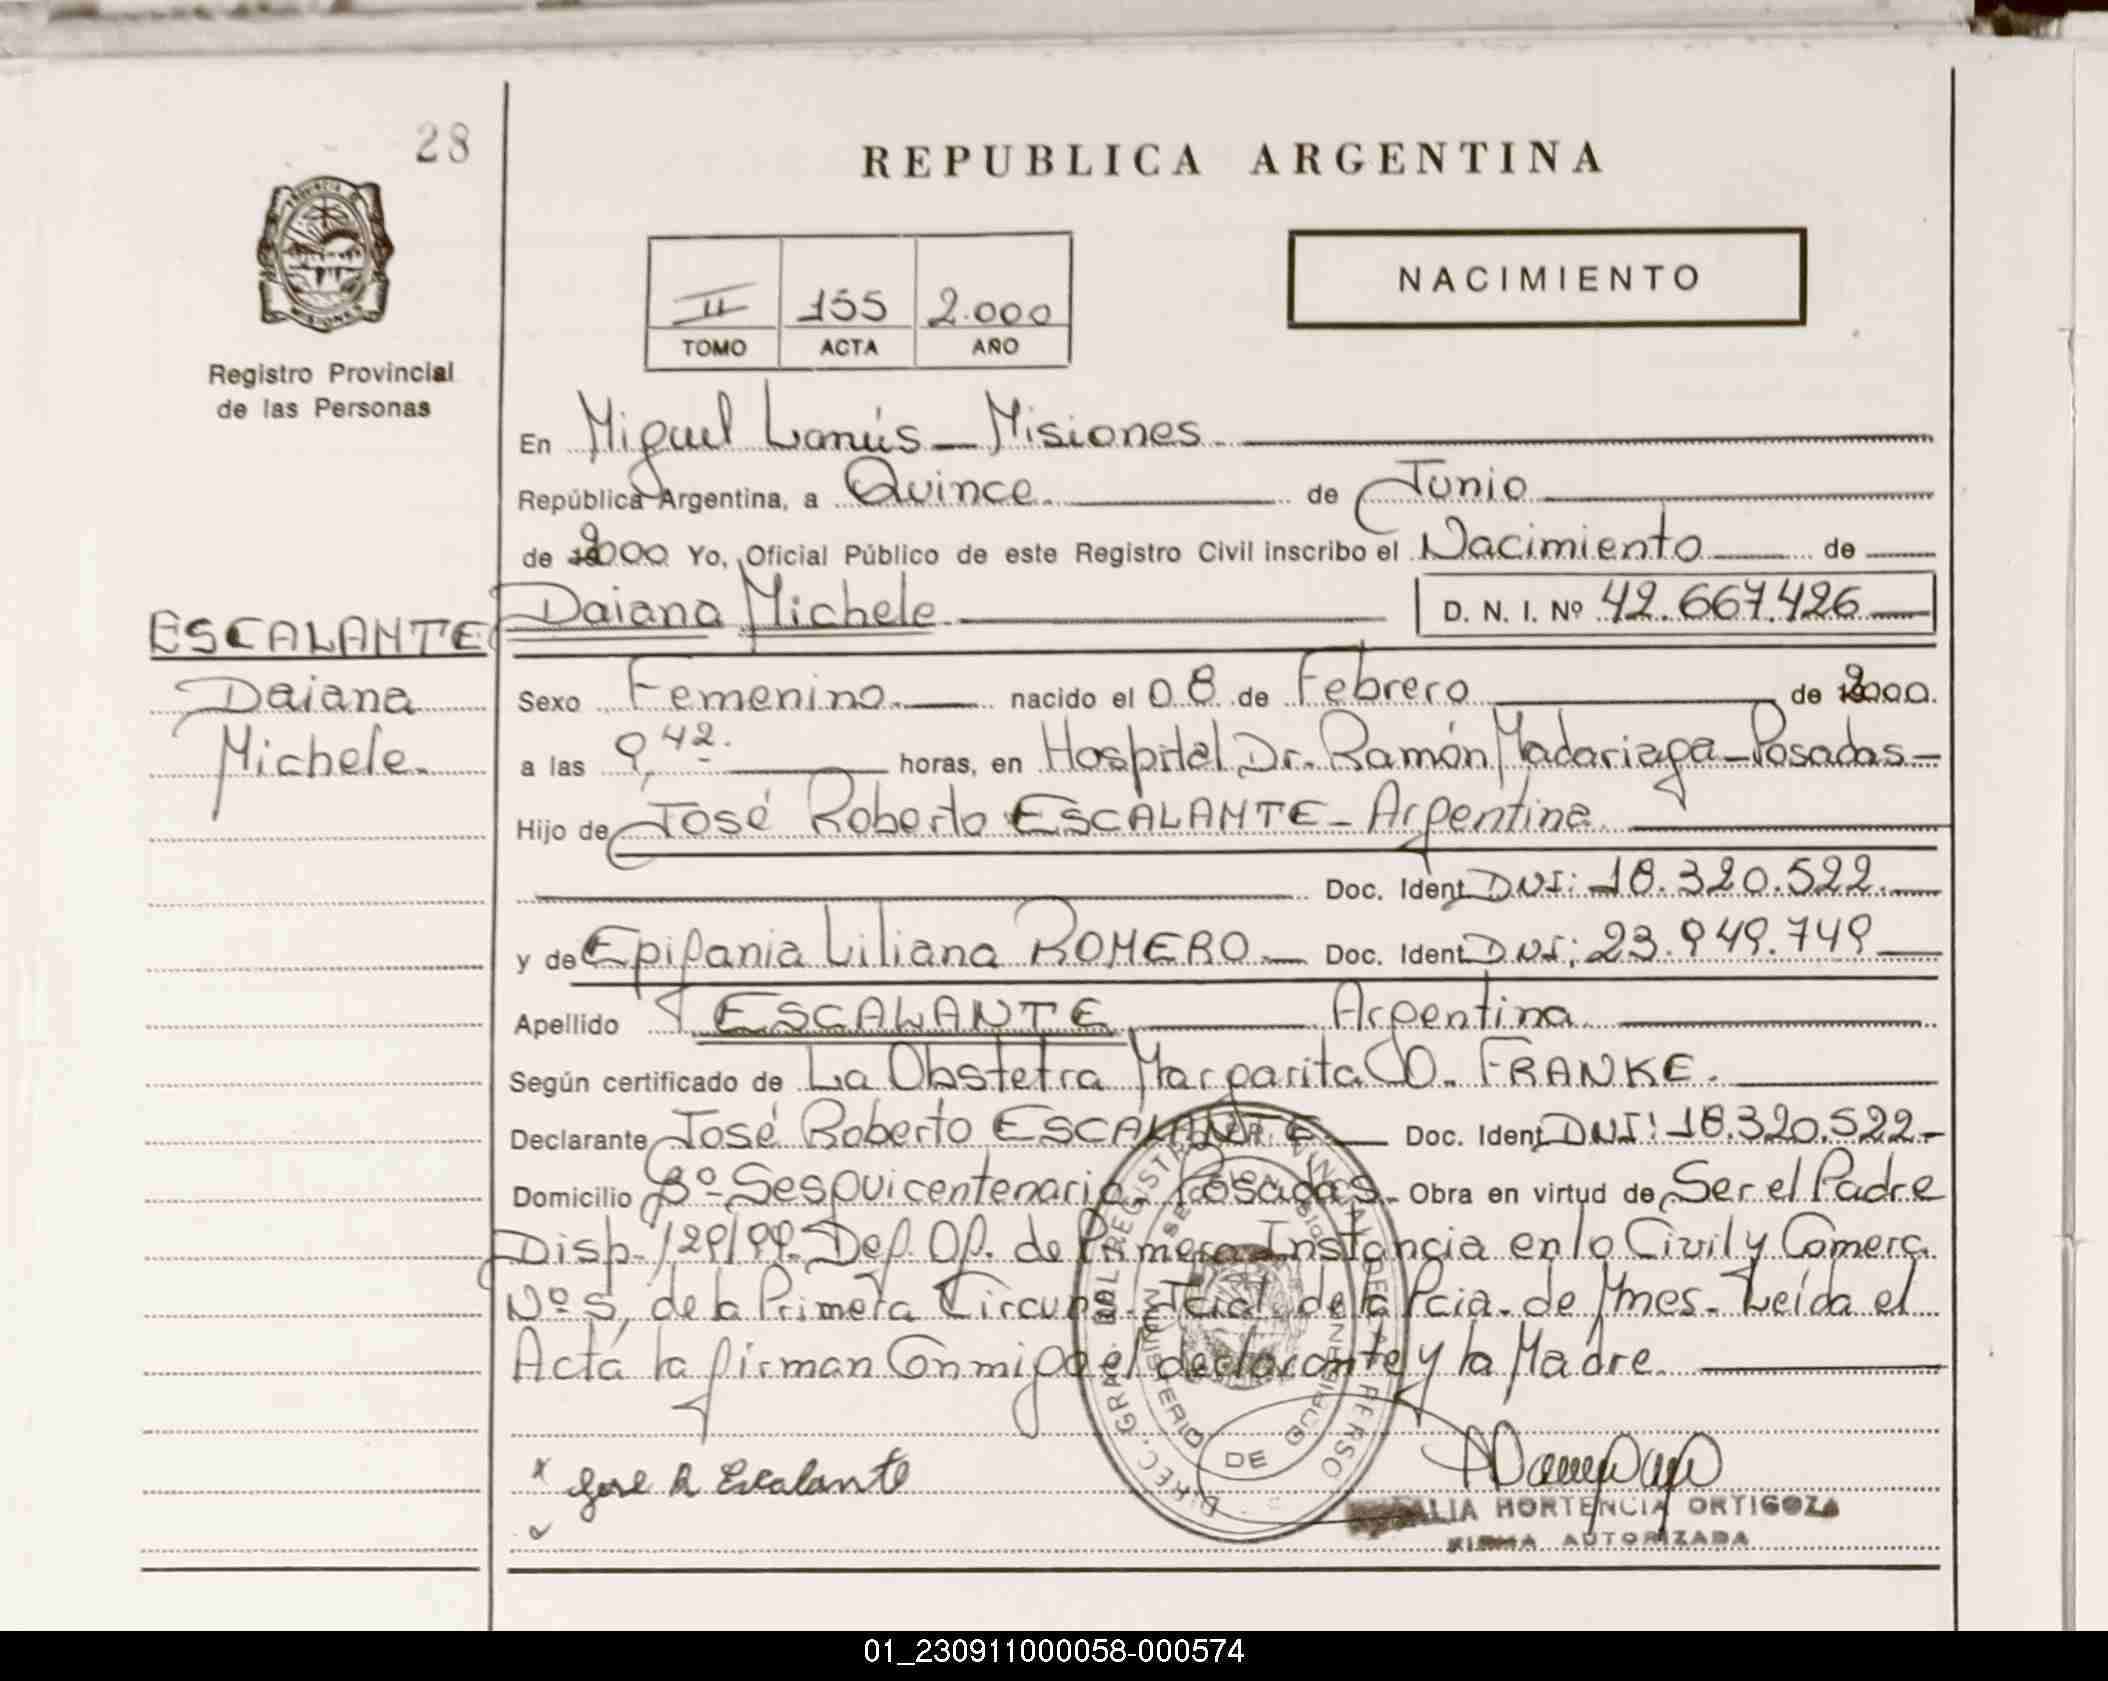 28
REPUBLICA ARGENTINA
PROVINCIA DE
MISIONES
Registro Provincial
de las Personas
NACIMIENTO
II 155 2.000
TOMO ACTA AÑO
En Miguel Lanús - Misiones
República Argentina, a Quince de Junio
de 2000 Yo, Oficial Público de este Registro Civil inscribo el Nacimiento de
Daiana Michele D. N. I. Nº 42.667.426
ESCALANTE
Daiana
Michele.
Sexo Femenino nacido el 08 de Febrero de 2000.
a las 9,42. horas, en Hospital Dr. Ramón Madariaga - Posadas -
Hijo de José Roberto ESCALANTE - Argentina
Doc. Ident. DNI: 18.320.522.
y de Epifania Liliana ROMERO Doc. Ident. DNI: 23.949.749
Apellido ESCALANTE Argentina
Según certificado de La Obstetra Margarita O. FRANKE.
Declarante José Roberto ESCALANTE Doc. Ident. DNI: 18.320.522-
Domicilio Bº- Sesquicentenario - Posadas - Obra en virtud de Ser el Padre
Disp. 129/99. Def. Of. de Primera Instancia en lo Civil y Comerc.
Nº 5, de la Primera Circuns. Jcial. de la Pcia. de Mnes. Leída el
Acta la firman Conmigo el declarante y la Madre.
DIREC. GRAL. DEL REGISTRO PROVINCIAL DE LAS PERSO
MINISTERIO DE GOBIERNO
x Jose R Escalante
HORTENCIA ORTIGOZA
FIRMA AUTORIZADA
01_230911000058-000574